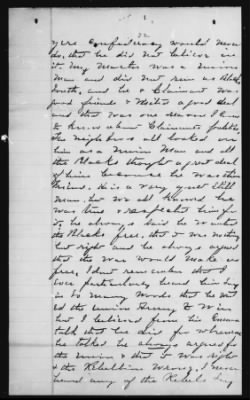 22
were Confederacy would never
do, that he did not believe in
it. My Master was a union
man and did not run as Black
South, and he & Claimant was
good friends & visited a good deal
and that was one reason I knew
to know about Claimant public
the neighbors all looked on
him as a Union Man and all
the Blacks thought a great deal
of him because he was their
friend. He is a very quiet still
man, but we all knowed he
was true & respected him for
it, he always said he wanted
the Blacks free, that it was nothing
but right and he always argued
that the War would make us
free, I dont remember that I
ever particularly heard him say
in so many words that he wanted
the union Army to win
but I believed from his Common
talk that he did for whenever
he talked he always argued for
the union & that it was right
& the Rebellion wrong, I never
heard any of the Rebels say